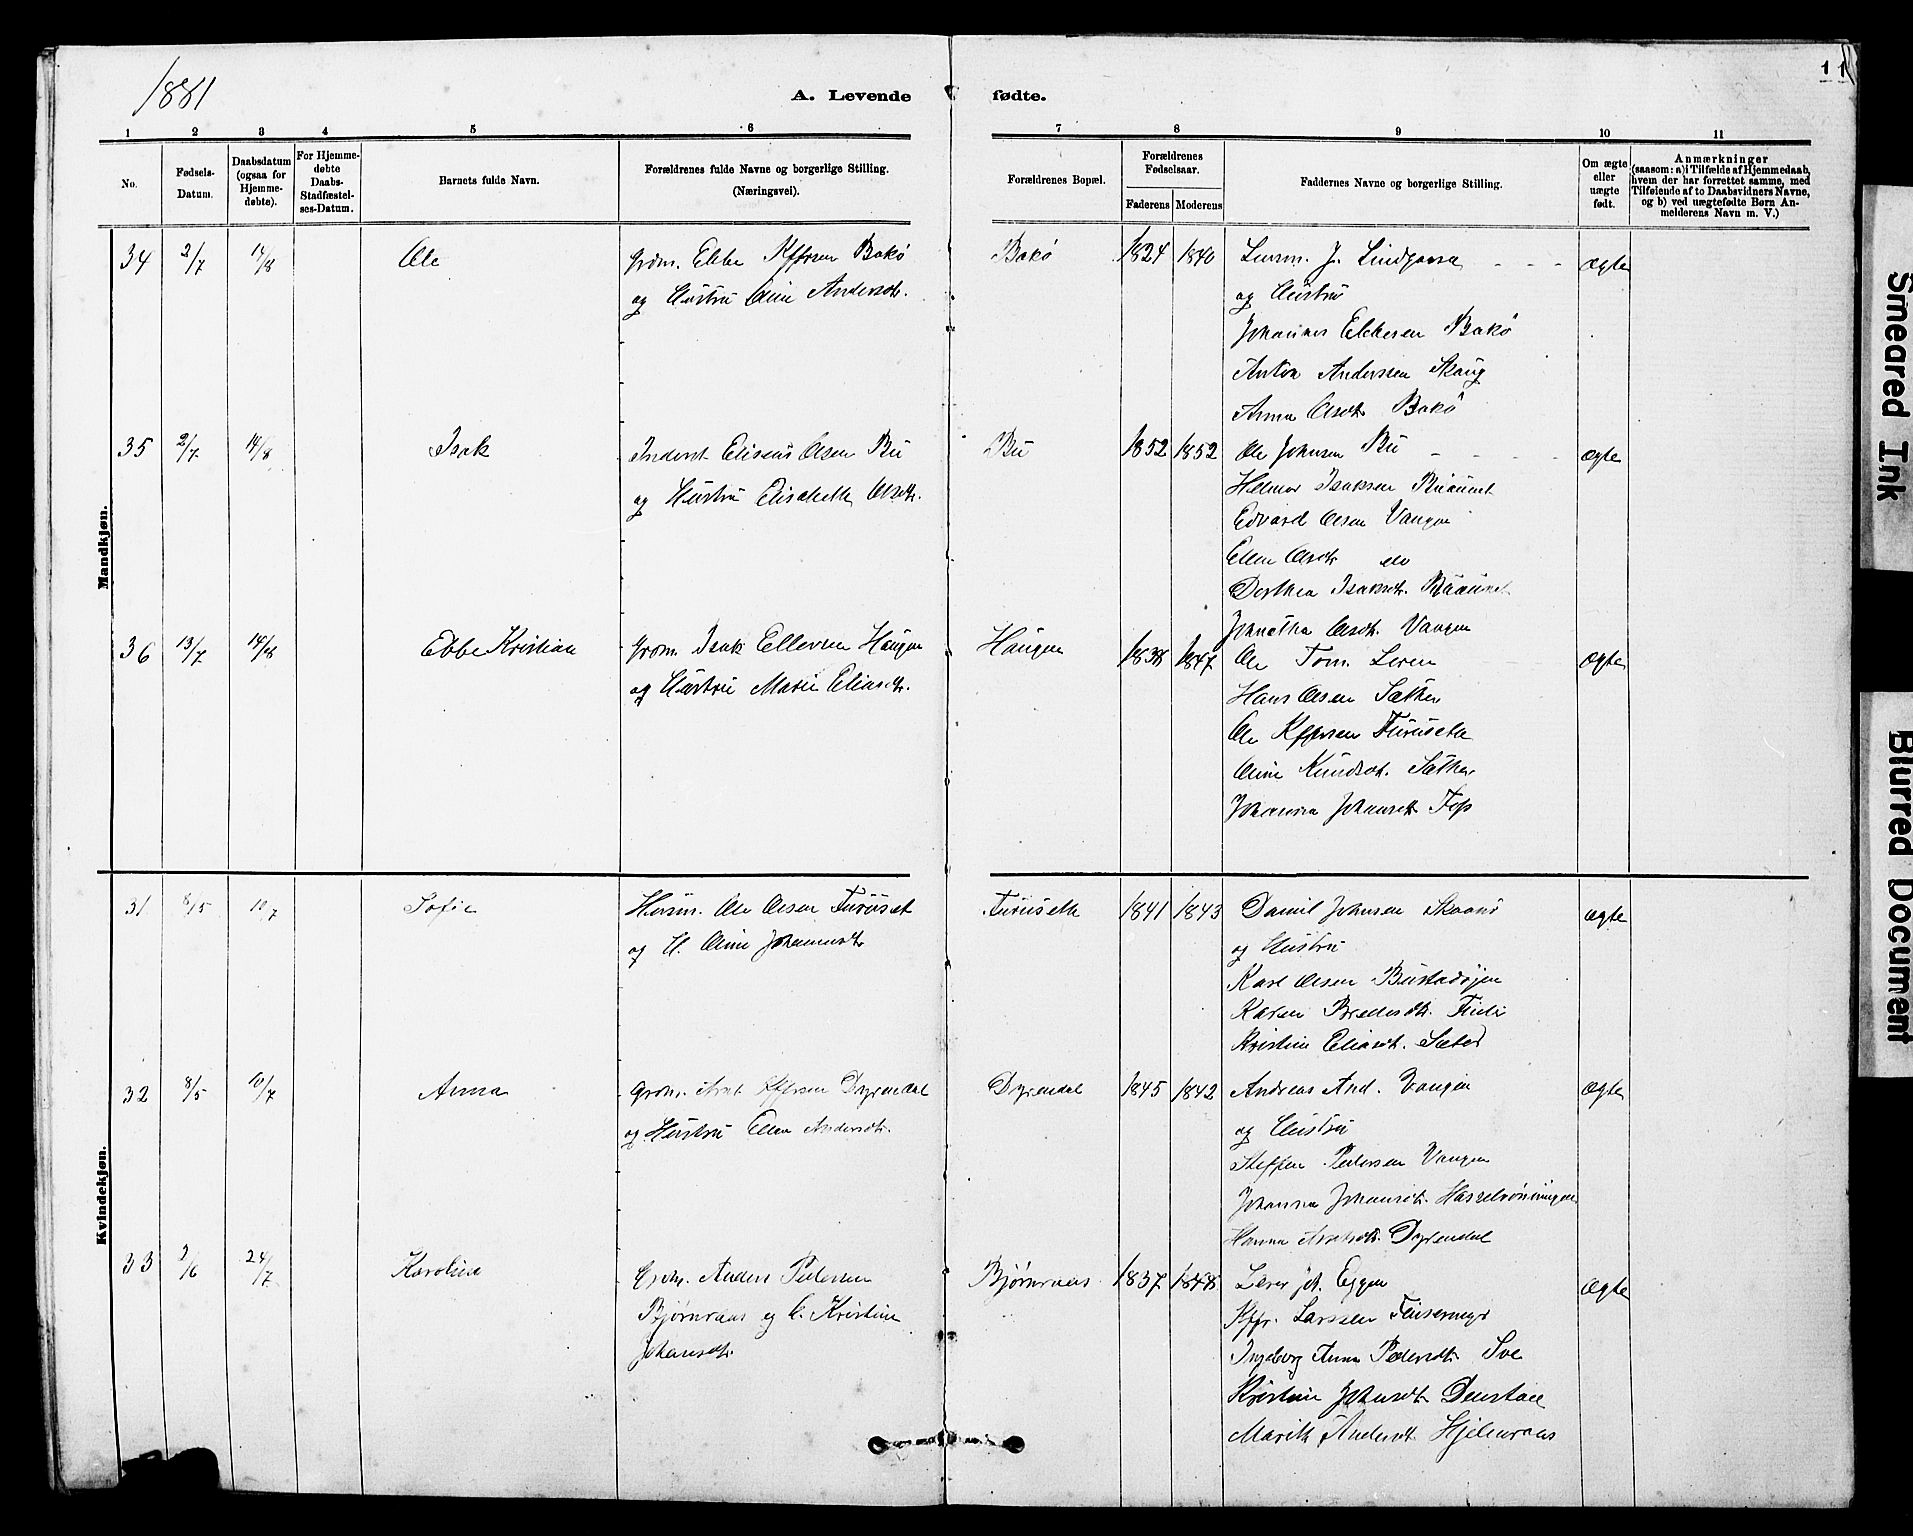 1881
A. Levende fødte.
11
1 2 3 4 5 6 7 8 9 10 11
No.
Fødsels-
Datum.
Daabsdatum
(ogsaa for
Hjemme-
døbte).
For Hjemme-
døbte
Daabs-
Stadfæstel-
ses-Datum.
Barnets fulde Navn.
Forældrenes fulde Navne og borgerlige Stilling.
(Næringsvei).
Forældrenes Bopæl.
Forældrenes
Fødselsaar.
Faderens Moderens
Faddernes Navne og borgerlige Stilling.
Om ægte
eller
uægte
født.
Anmærkninger
(saasom: a) I Tilfælde af Hjemmedaab,
hvem der har forrettet samme, med
Tilføiende af to Daabsvidners Navne,
og b) ved uægtefødte Børn An-
melderens Navn m. V.)
Mandkjøn.
34 2/7 14/8 Ole
Grdm. Ebbe Bakø
og Hustru Andersdt.
Bakø 1824 1840
Lensm. J.
og Hustru
Johannes Ebbesen Bakø
Anton Anderssen Skaug
Anna Olsdt. Bakø
ægte
35 2/7 14/8 Isak
Inderst Eliseus Olsen Bu
og Hustru Elisabeth Olsdt.
Bu 1852 1852
Ole Johnsen Bu
Helmer Isaksen
Edvard Olsen Vangen
Ellen Olsdt. do
Dorthea Isaksdt.
Olsdt. Vangen
ægte
36 13/7 14/8 Ebbe Kristian
Grdm. Isak Ellevsen Haugen
og Hustru Marie Eliasdt.
Haugen 1838 1847
Ole Tom.
Hans Olsen Sæther
Ole Furuseth
Knudsdt. Sæther
Johanna Johansdt.
ægte
Kvindekjøn.
31 8/5 10/7 Sofie
Husm. Ole Olsen Furuset
og H. Johannesdt.
Furuseth 1841 1843
Daniel Johnsen
og Hustru
Karl Olsen
Karen
Kristine Eliasdt. Sæter
ægte
32 8/5 10/7 Anna
Grdm. Arnt Dyrendal
og Hustru Ellen Andersdt.
Dyrendal 1845 1842
Andreas And. Vangen
og Hustru
Steffen Pedersen Vangen
Johanna Johansdt.
Hanna Arntsdt. Dyrendal
ægte
33 2/6 24/7 Karoline
Grdm. Anders Pedersen
Bjørnraas og H. Kristine
Johansdt.
Bjørnraas 1837 1848
Lærer Joh. Eggen
Larssen
Ingeborg Anna Pedersdt. Sve
Kristine Johnsdt. Denstad
Marith Andersdt. Hjelmraas
ægte
Smeared Ink
Blurred Document